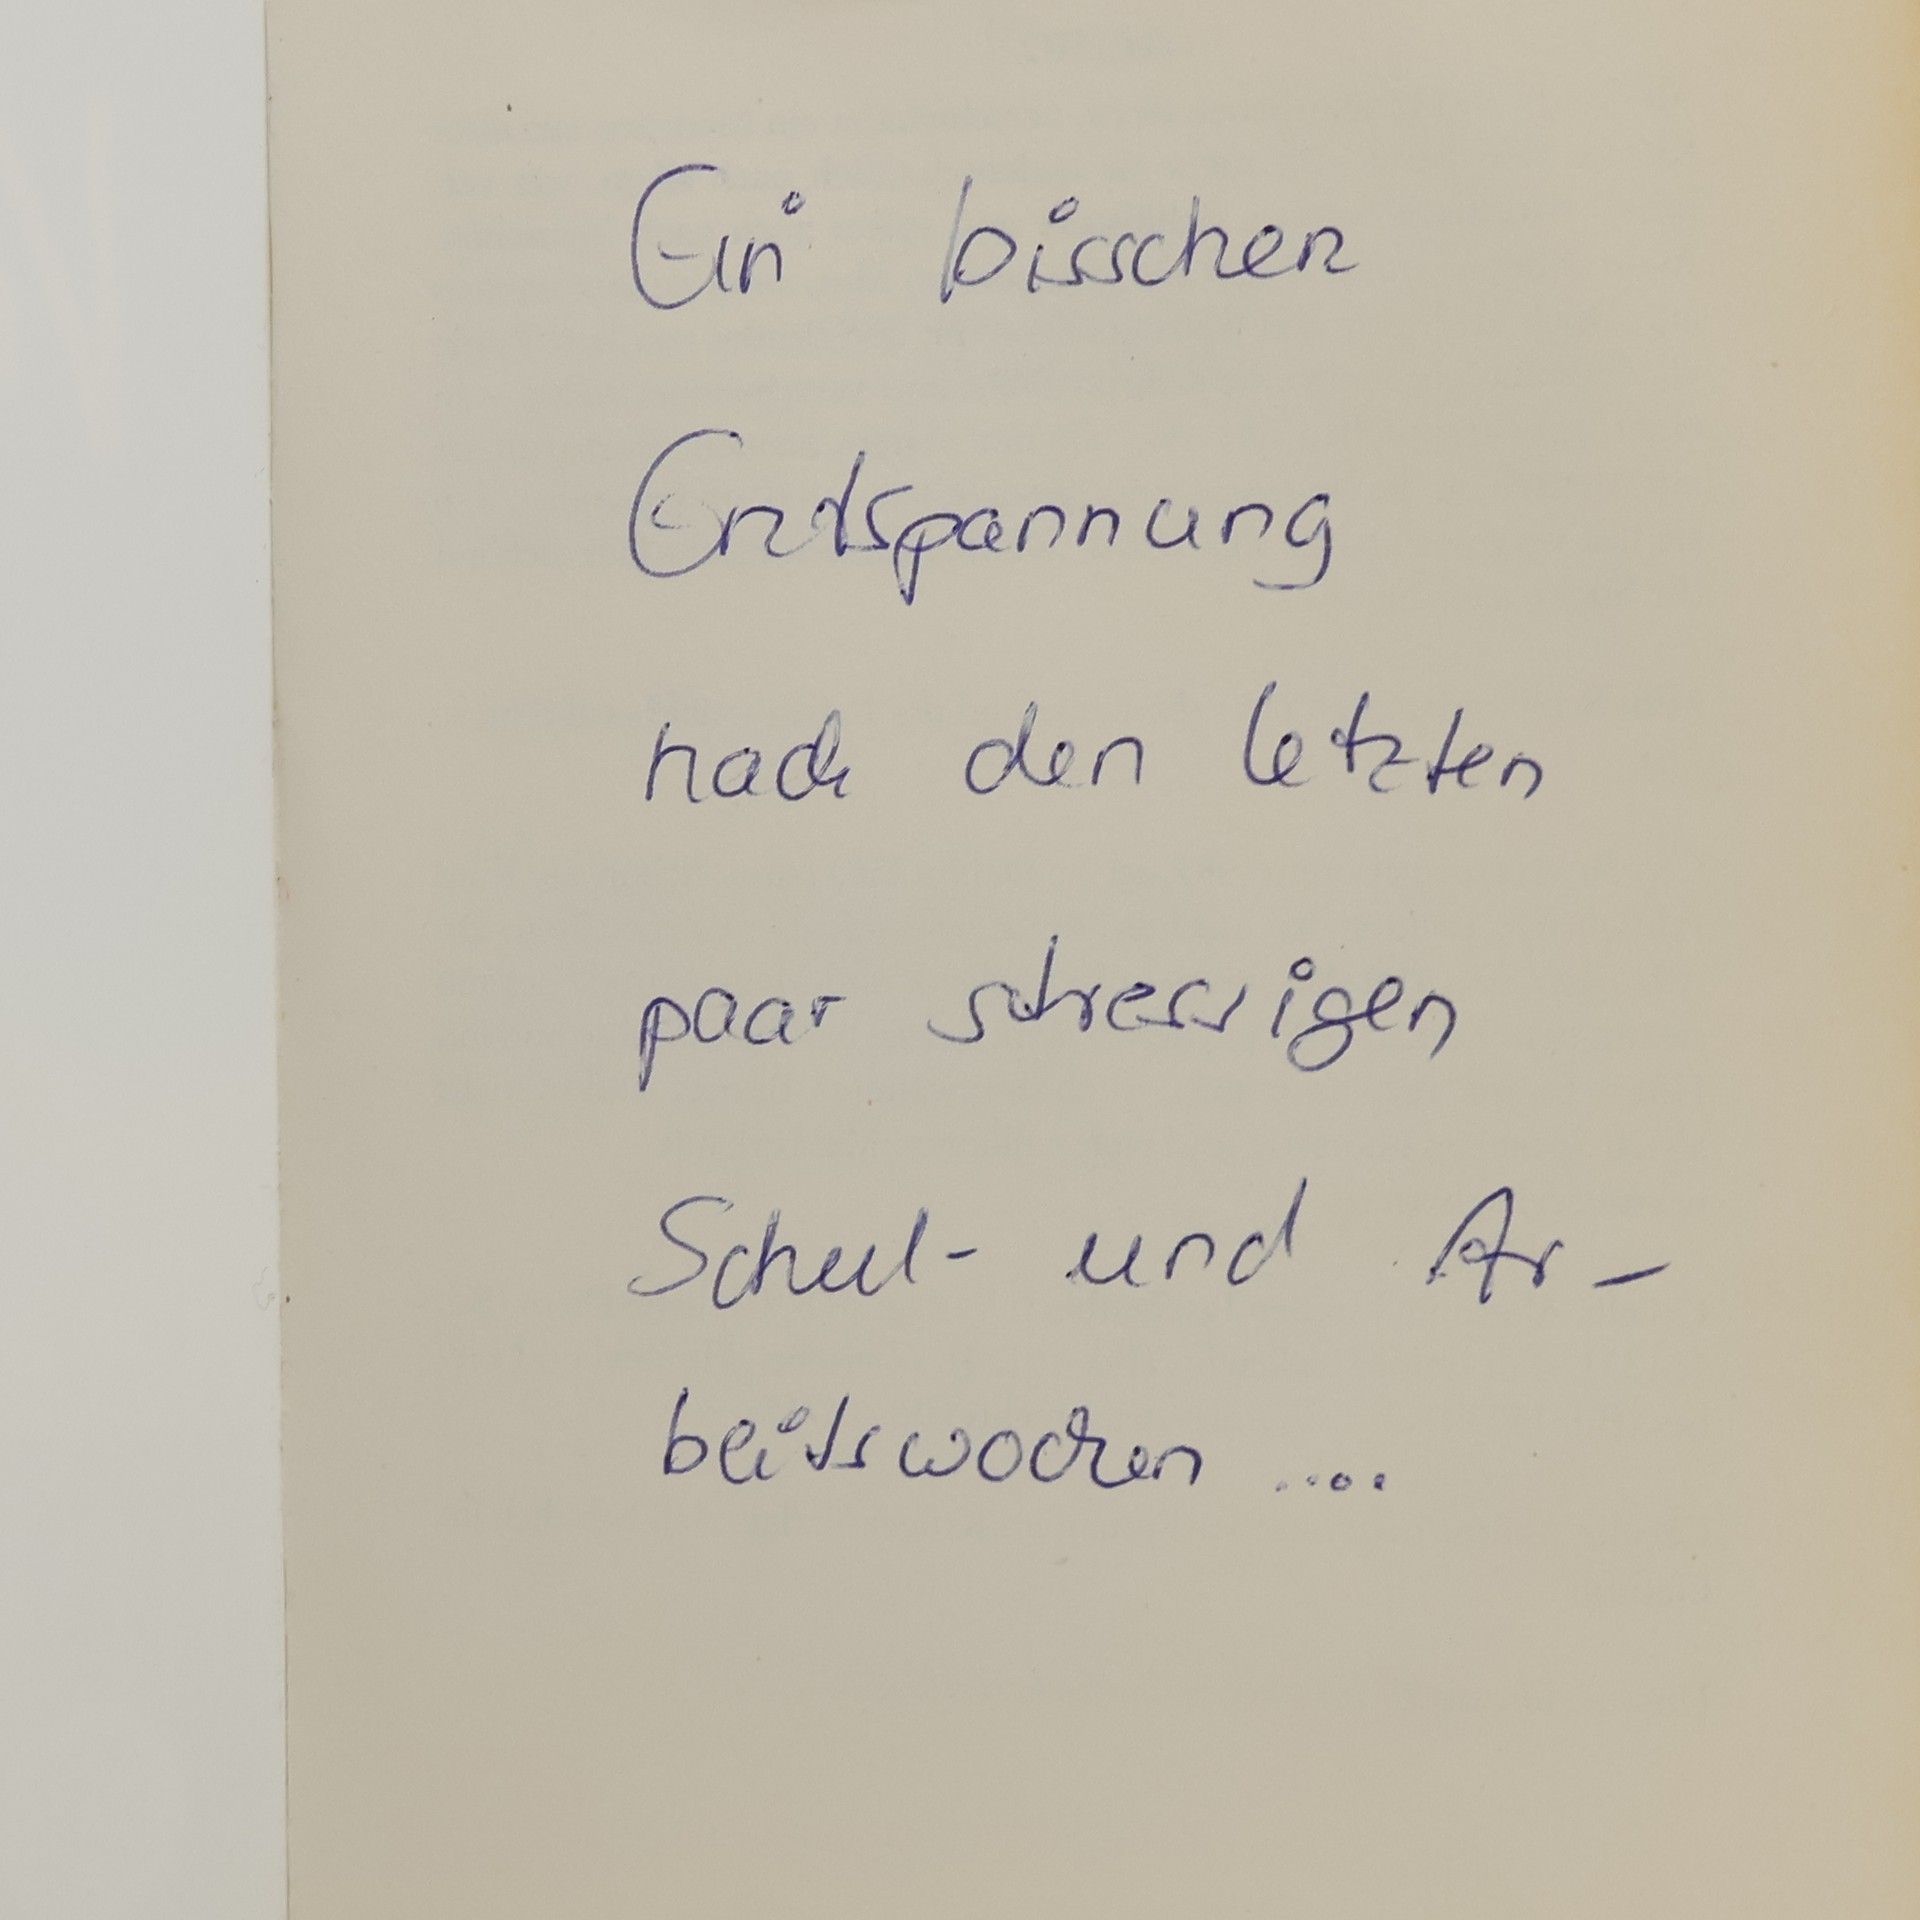 Ein bisschen
Entspannung
nach den letzten
paar stressigen
Schul- und Ar-
beitswochen ....